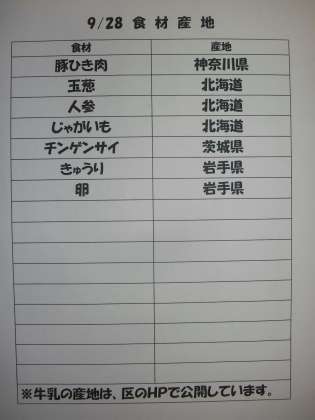 9/28 食材産地
食材 産地
豚ひき肉 神奈川県
玉葱 北海道
人参 北海道
じゃがいも 北海道
チンゲンサイ 茨城県
きゅうり 岩手県
卵 岩手県
※牛乳の産地は、区のHPで公開しています。